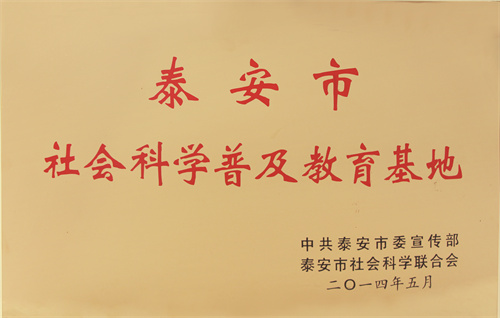 泰安市
社会科学普及教育基地
中共泰安市委宣传部
泰安市社会科学联合会
二〇一四年五月